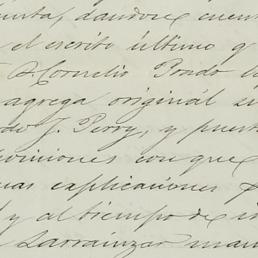 dandose cuent
el escrito último q
D. Cornelio Prado
agrega original
J. Perry, y puest
opiniones con que
explicaciones
y al tiempo de
Larrainzar man